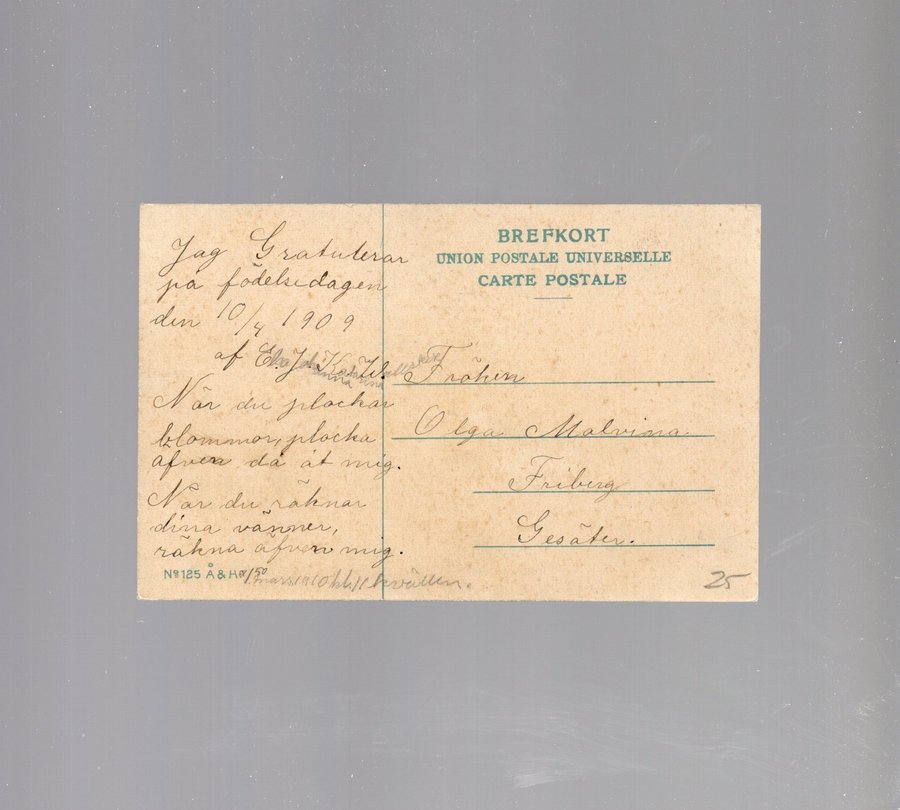 Jag Gratulerar
på födelsedagen
den 10/4 1909
af E. J. K. W.
När du plockar
blommor, plocka
äfven då åt mig.
När du räknar
dina vänner,
räkna äfven mig.
No 125 Å & H
mars 1910 kl. 11 kvällen.
BREFKORT
UNION POSTALE UNIVERSELLE
CARTE POSTALE
Fröken
Olga Malvina
Friberg
Gesäter.
25